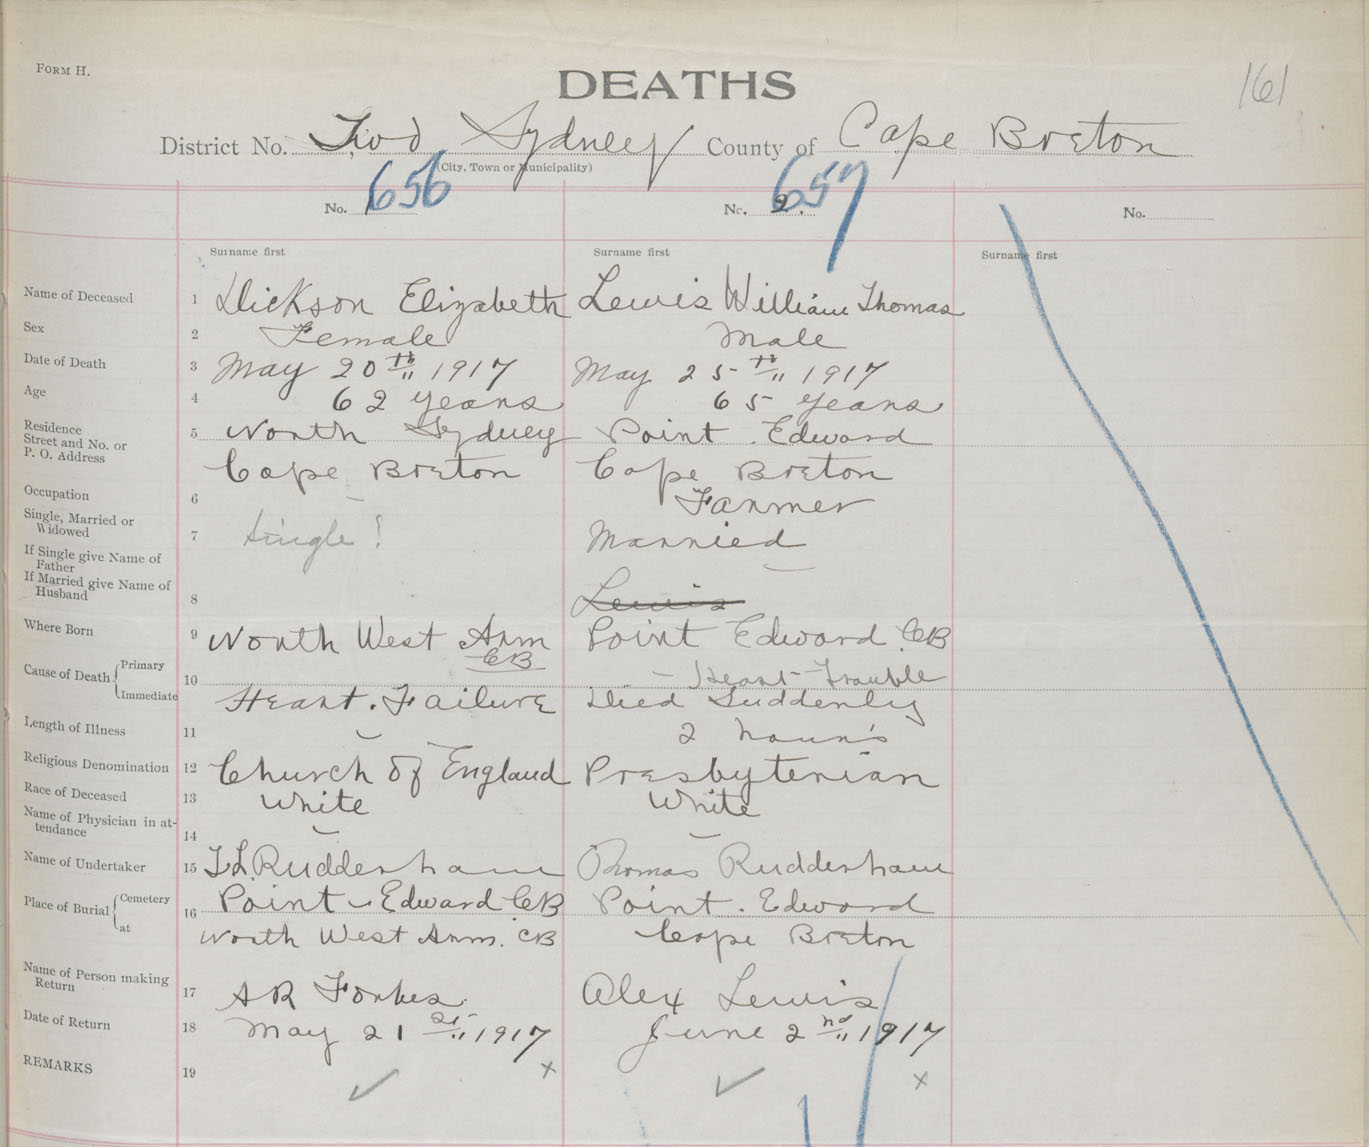 FORM H.
DEATHS
161
District No. Two Sydney County of Cape Breton
(City, Town or Municipality)
No. 1 656 No. 2. 657 No.
Surname first Surname first Surname first
Name of Deceased 1 Dickson Elizabeth Lewis William Thomas
Sex 2 Female Male
Date of Death 3 May 20th 1917 May 25th 1917
Age 4 62 years 65 years
Residence Street and No. or P. O. Address 5 North Sydney Point Edward
Cape Breton Cape Breton
Occupation 6 Farmer
Single, Married or Widowed 7 Single! Married
If Single give Name of Father
If Married give Name of Husband 8 Lewis
Where Born 9 North West Arm CB Point Edward CB
Cause of Death { Primary 10 Heart Trouble
Immediate Heart Failure Died Suddenly
Length of Illness 11 2 hours
Religious Denomination 12 Church of England Presbyterian
Race of Deceased 13 White White
Name of Physician in attendance 14
Name of Undertaker 15 T L Rudderham Thomas Rudderham
Place of Burial { Cemetery 16 Point Edward CB Point Edward
at North West Arm. CB Cape Breton
Name of Person making Return 17 A R Forbes Alex Lewis
Date of Return 18 May 21st 1917 June 2nd 1917
REMARKS 19 x x